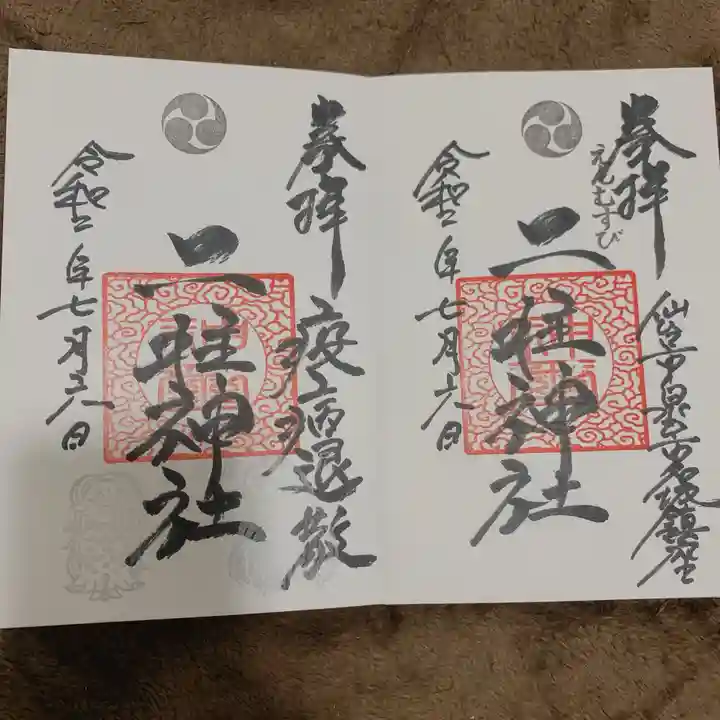 奉拝
えんむすび
仙台市泉区市名坂鎮座
二柱神社
令和二年七月六日
奉拝
疫病退散
二柱神社
令和二年七月六日